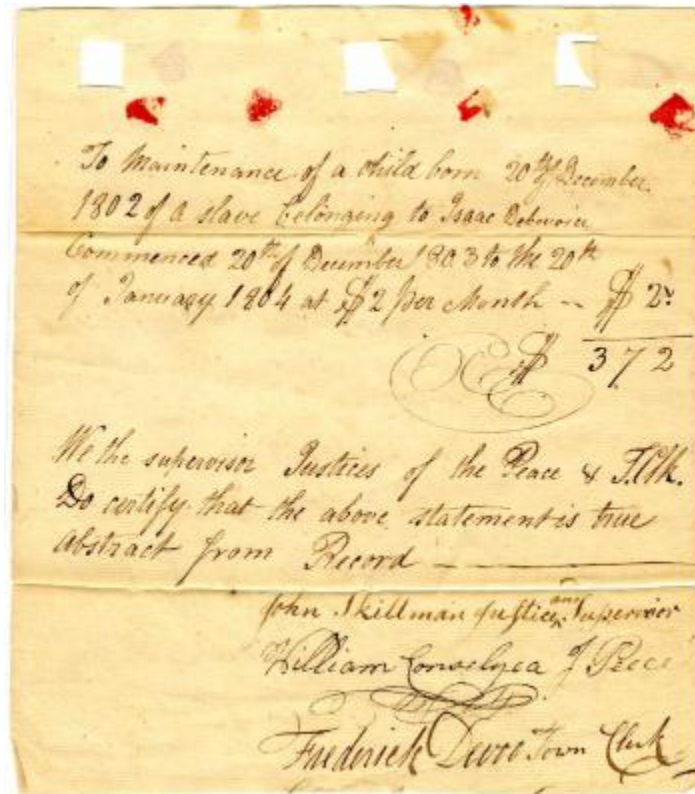 To Maintenance of a child born 20th of December
1802 of a slave belonging to Isaac Debvoice
Commenced 20th of December 1803 to the 20th
of January 1804 at $2 per Month -- $ 2"
$ 372
We the supervisor Justices of the Peace & T.Clk.
Do certify that the above statement is true
abstract from Record
John Skillman Justice and Supervisor
William Conselyea J Pece
Frederick Devoe Town Clerk